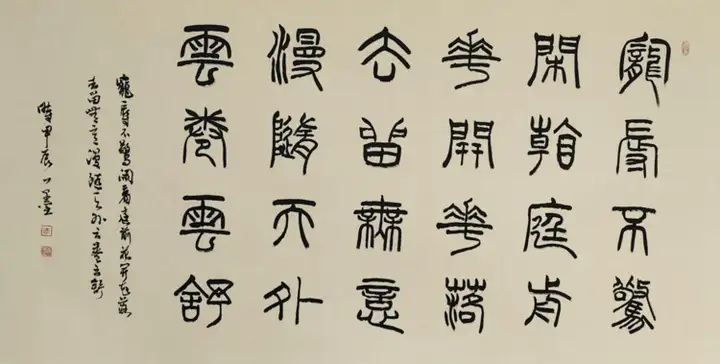 寵辱不驚
閑看庭前
華開華落
去留無意
漫隨天外
雲卷雲舒
寵辱不驚閑看庭前花開花落
去留無意漫隨天外云卷云舒
時甲辰 墨